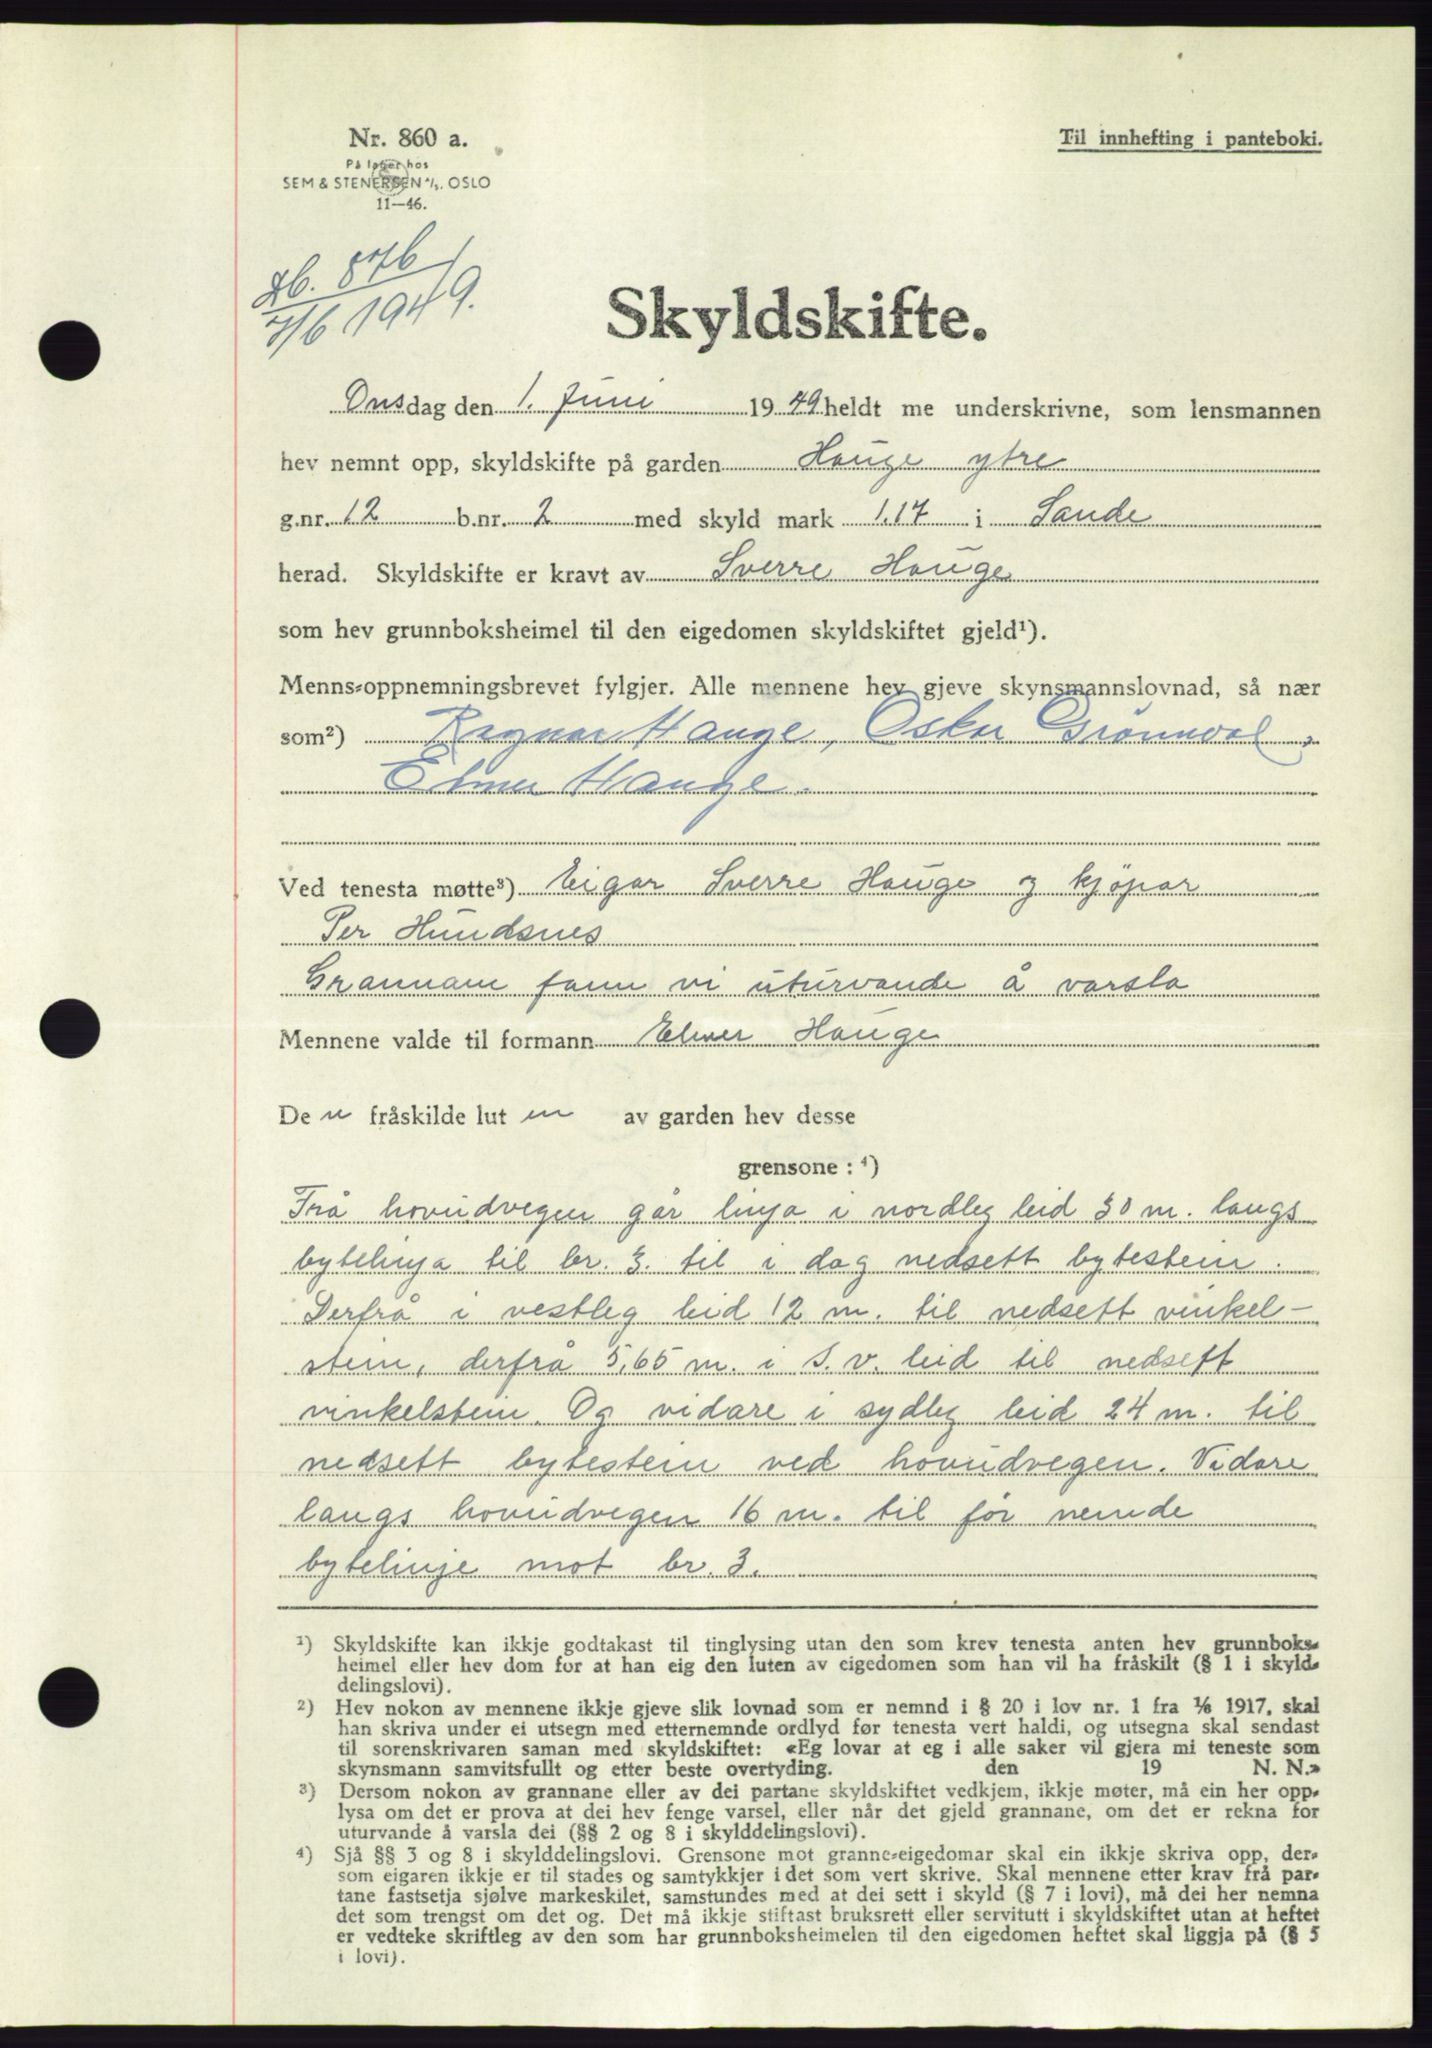 Nr. 860 a.
Til innhefting i panteboki.
På lager hos
SEM & STENERSEN A/S, OSLO
11—46.
Db. 876
7/6 1949.
Skyldskifte.
Onsdag den 1. Juni 1949 heldt me underskrivne, som lensmannen
hev nemnt opp, skyldskifte på garden Hauge ytre
g.nr. 12 b.nr. 2 med skyld mark 1.17 i Sande
herad. Skyldskifte er kravt av Sverre Hauge
som hev grunnboksheimel til den eigedomen skyldskiftet gjeld¹).
Menns-oppnemningsbrevet fylgjer. Alle mennene hev gjeve skynsmannslovnad, så nær
som²) Ragnar Hauge, Oskar Grönnvol,
Elmer Hauge.
Ved tenesta møtte³) Eigar Sverre Hauge og kjöpar
Per Hundsnes
Grannam fann vi uturvande å varsla
Mennene valde til formann Elmer Hauge
De n fråskilde lut en av garden hev desse
grensone : ⁴)
Frå hovudvegen går linja i nordleg leid 30 m. langs
bytelinja til br. 3. til i dag nedsett bytestein.
Derfrå i vestleg leid 12 m. til nedsett vinkel-
stein, derfrå 5,65 m. i S. v. leid til nedsett
vinkelstein. Og vidare i sydleg leid 24 m. til
nedsett bytestein ved hovudvegen. Vidare
langs hovudvegen 16 m. til før nemde
bytelinje mot br. 3.
¹) Skyldskifte kan ikkje godtakast til tinglysing utan den som krev tenesta anten hev grunnboks-
heimel eller hev dom for at han eig den luten av eigedomen som han vil ha fråskilt (§ 1 i skyld-
delingslovi).
²) Hev nokon av mennene ikkje gjeve slik lovnad som er nemnd i § 20 i lov nr. 1 fra 1/6 1917, skal
han skriva under ei utsegn med etternemnde ordlyd før tenesta vert haldi, og utsegna skal sendast
til sorenskrivaren saman med skyldskiftet: «Eg lovar at eg i alle saker vil gjera mi teneste som
skynsmann samvitsfullt og etter beste overtyding. den 19 N. N.»
³) Dersom nokon av grannane eller av dei partane skyldskiftet vedkjem, ikkje møter, må ein her opp-
lysa om det er prova at dei hev fenge varsel, eller når det gjeld grannane, om det er rekna for
uturvande å varsla dei (§§ 2 og 8 i skylddelingslovi).
⁴) Sjå §§ 3 og 8 i skylddelingslovi. Grensone mot granne-eigedomar skal ein ikkje skriva opp, der-
som eigaren ikkje er til stades og samtykkjer i det som vert skrive. Skal mennene etter krav frå par-
tane fastsetja sjølve markeskilet, samstundes med at dei sett i skyld (§ 7 i lovi), må dei her nemna
det som trengst om det og. Det må ikkje stiftast bruksrett eller servitutt i skyldskiftet utan at heftet
er vedteke skriftleg av den som har grunnboksheimelen til den eigedomen heftet skal liggja på (§ 5
i lovi).